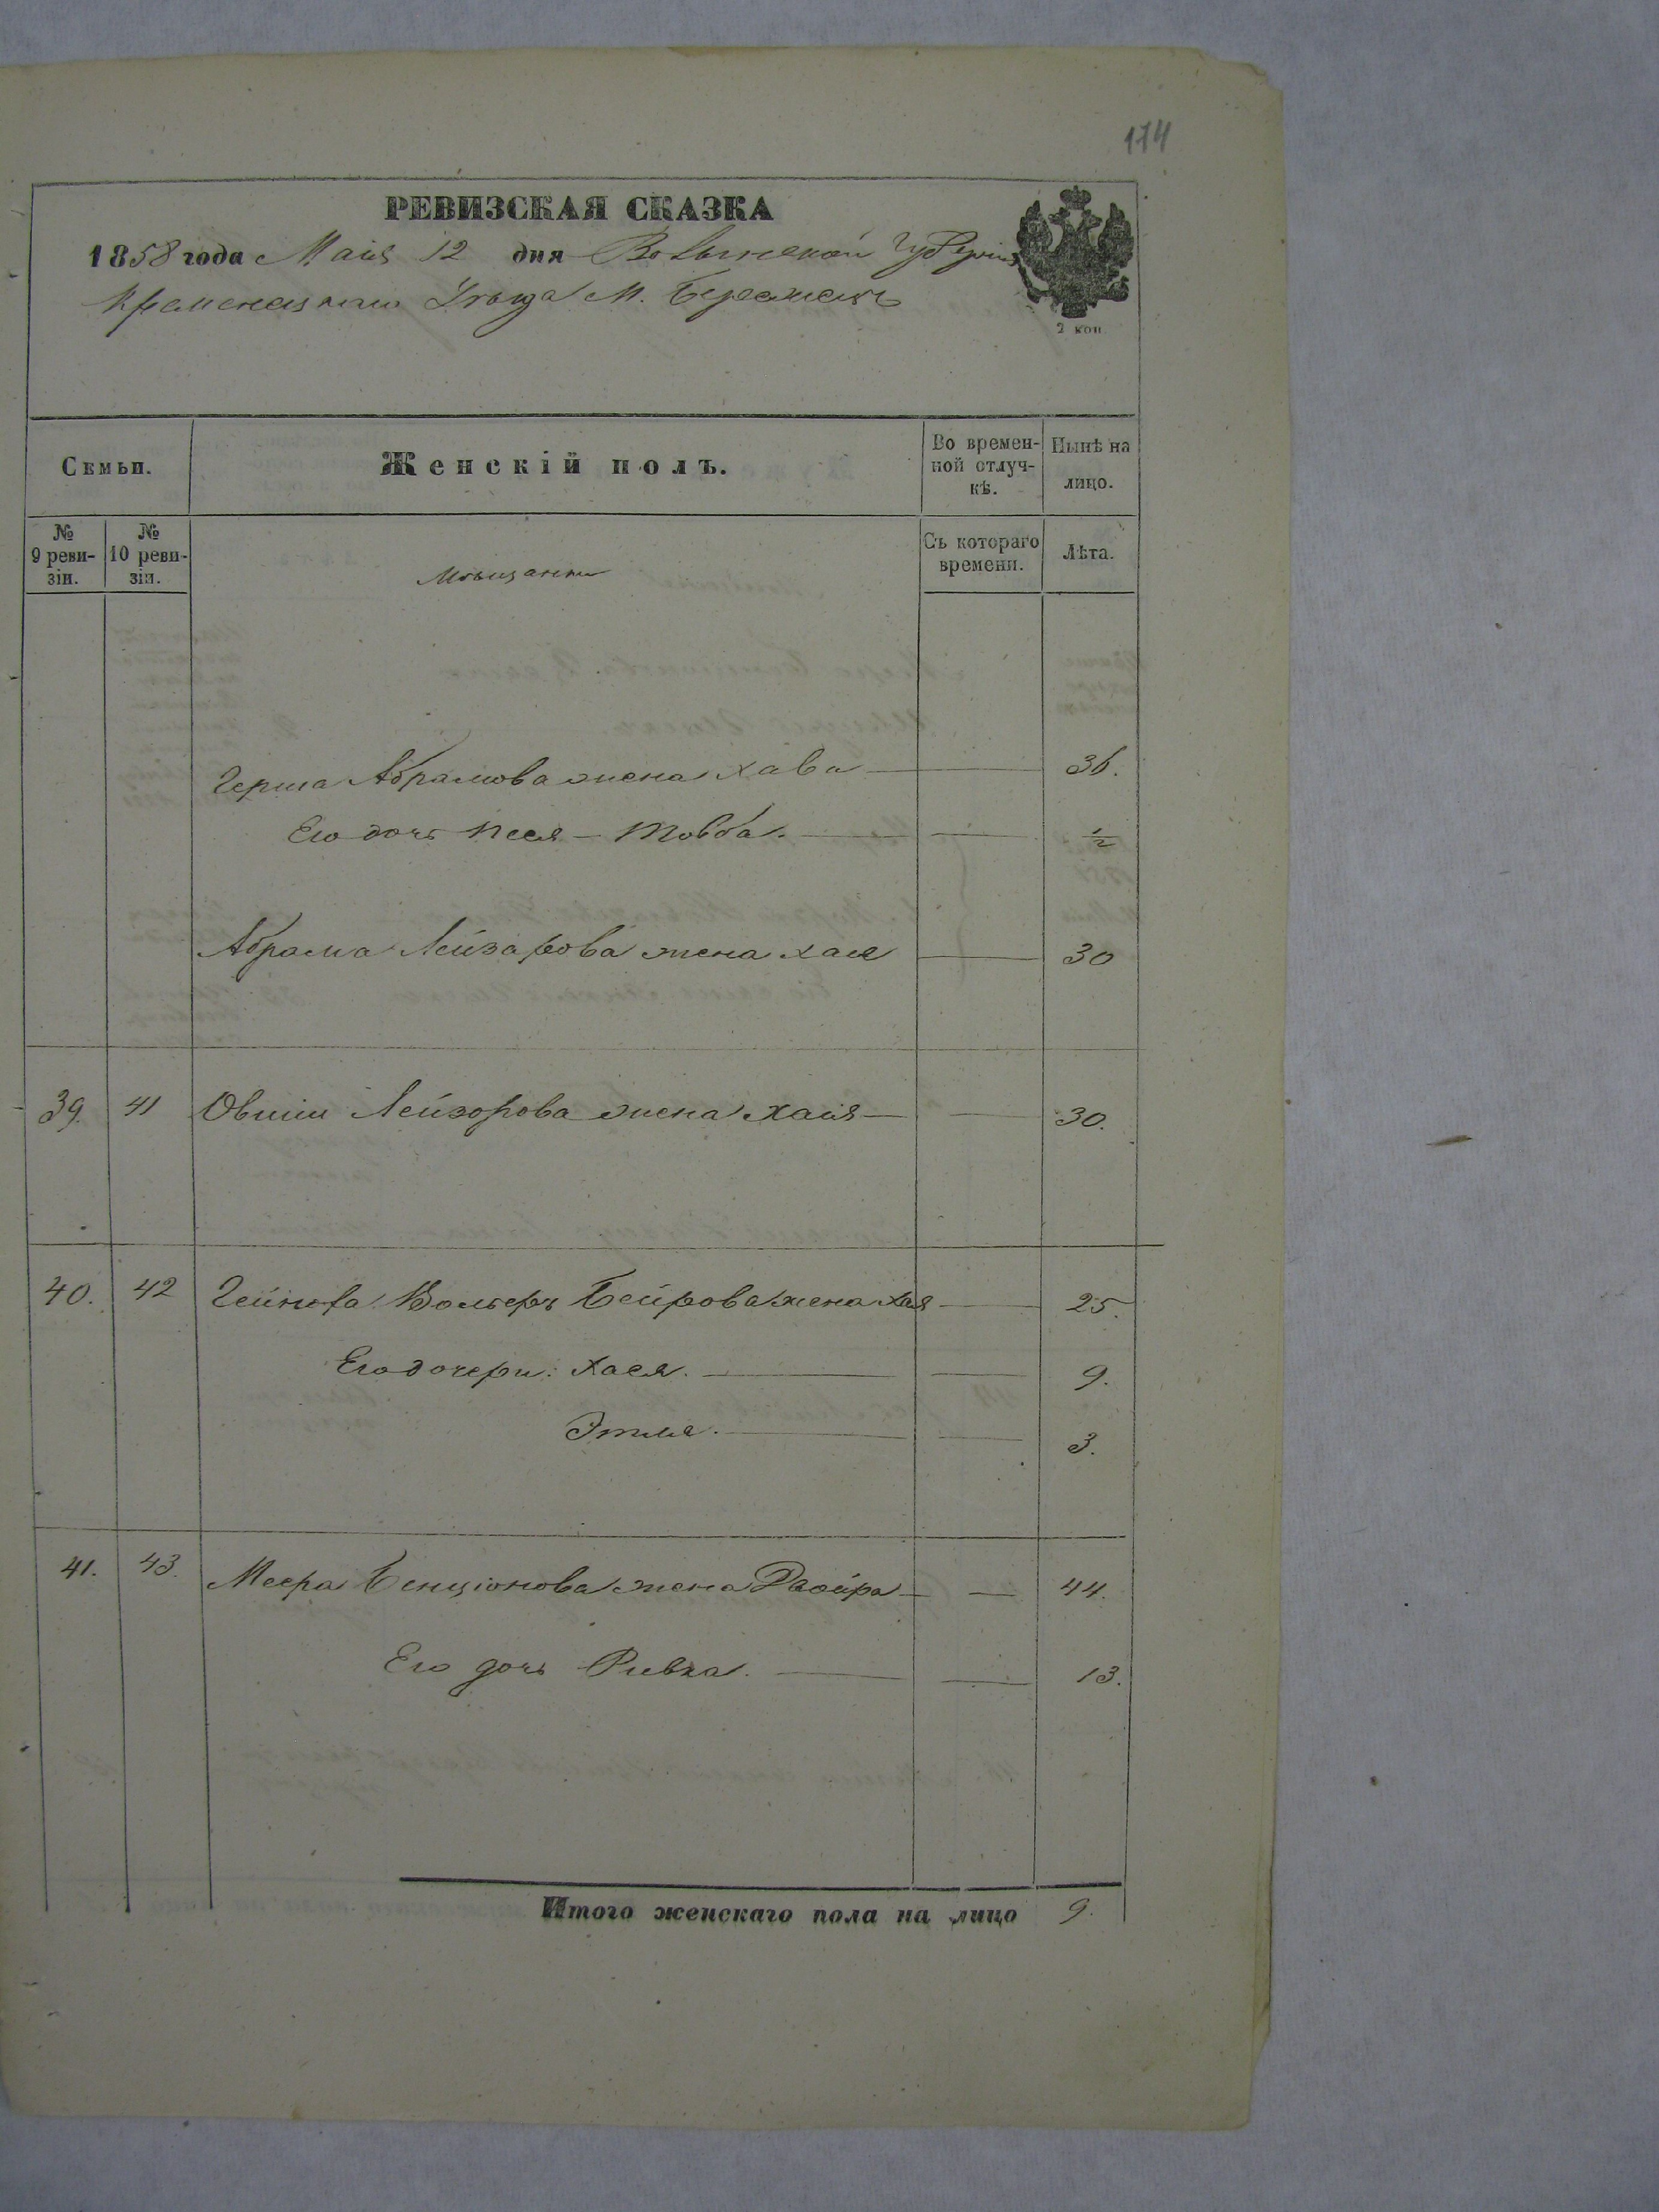 174
РЕВИЗСКАЯ СКАЗКА
1858 года Маія 12 дня Волынской Губерніи
Кременецкаго Уѣзда М. Бережецъ
2 коп.
Семьи.
Женскій полъ.
Во времен-
ной отлуч-
кѣ.
Нынѣ на
лицо.
№
9 реви-
зіи.
№
10 реви-
зіи.
Мѣщанки
Съ котораго
времени.
Лѣта.
Герша Абрамова жена Хава — 36.
Его дочь Песя - Товба. — 1/2
Абрама Лейзарова жена Хая — 30
39. 41 Овшіи Лейзорова жена Хаія — 30.
40. 42 Вольфъ Бейрова жена Хая — 25.
Его дочери: Хася. — 9.
Этля. — 3.
41. 43. Меера Бенціонова жена Двойра — 44.
Его дочь Ривка. — 13.
Итого женскаго пола на лицо 9.